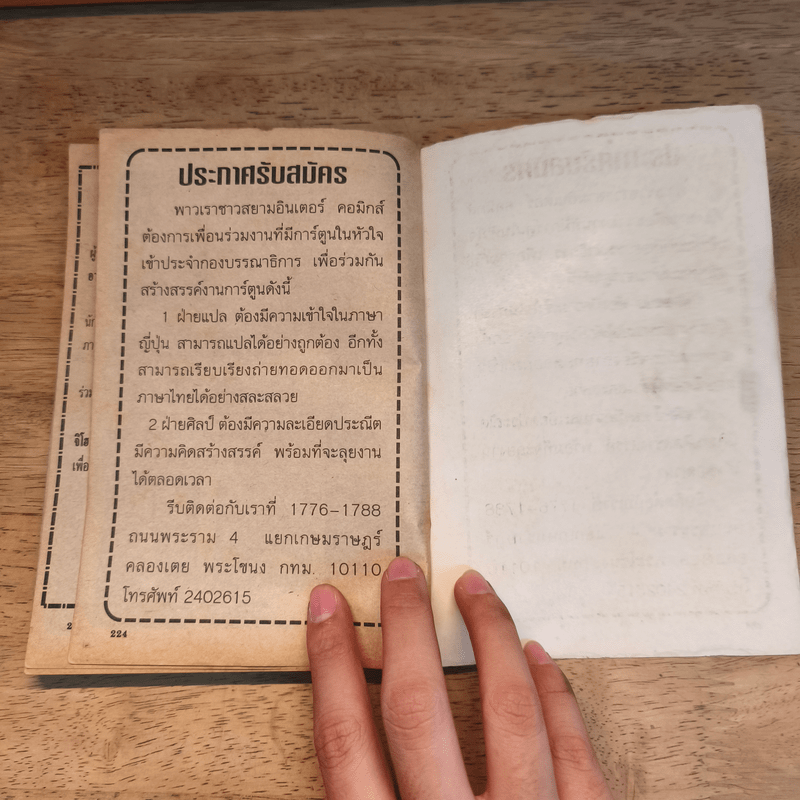 ประกาศรับสมัคร
พาวเราชาวสยามอินเตอร์ คอมิกส์
ต้องการเพื่อนร่วมงานที่มีการ์ตูนในหัวใจ
เข้าประจำกองบรรณาธิการ เพื่อร่วมกัน
สร้างสรรค์งานการ์ตูนดังนี้
1 ฝ่ายแปล ต้องมีความเข้าใจในภาษา
ญี่ปุ่น สามารถแปลได้อย่างถูกต้อง อีกทั้ง
สามารถเรียบเรียงถ่ายทอดออกมาเป็น
ภาษาไทยได้อย่างสละสลวย
2 ฝ่ายศิลป์ ต้องมีความละเอียดประณีต
มีความคิดสร้างสรรค์ พร้อมที่จะลุยงาน
ได้ตลอดเวลา
รีบติดต่อกับเราที่ 1776-1788
ถนนพระราม 4 แยกเกษมราษฎร์
คลองเตย พระโขนง กทม. 10110
โทรศัพท์ 2402615
224